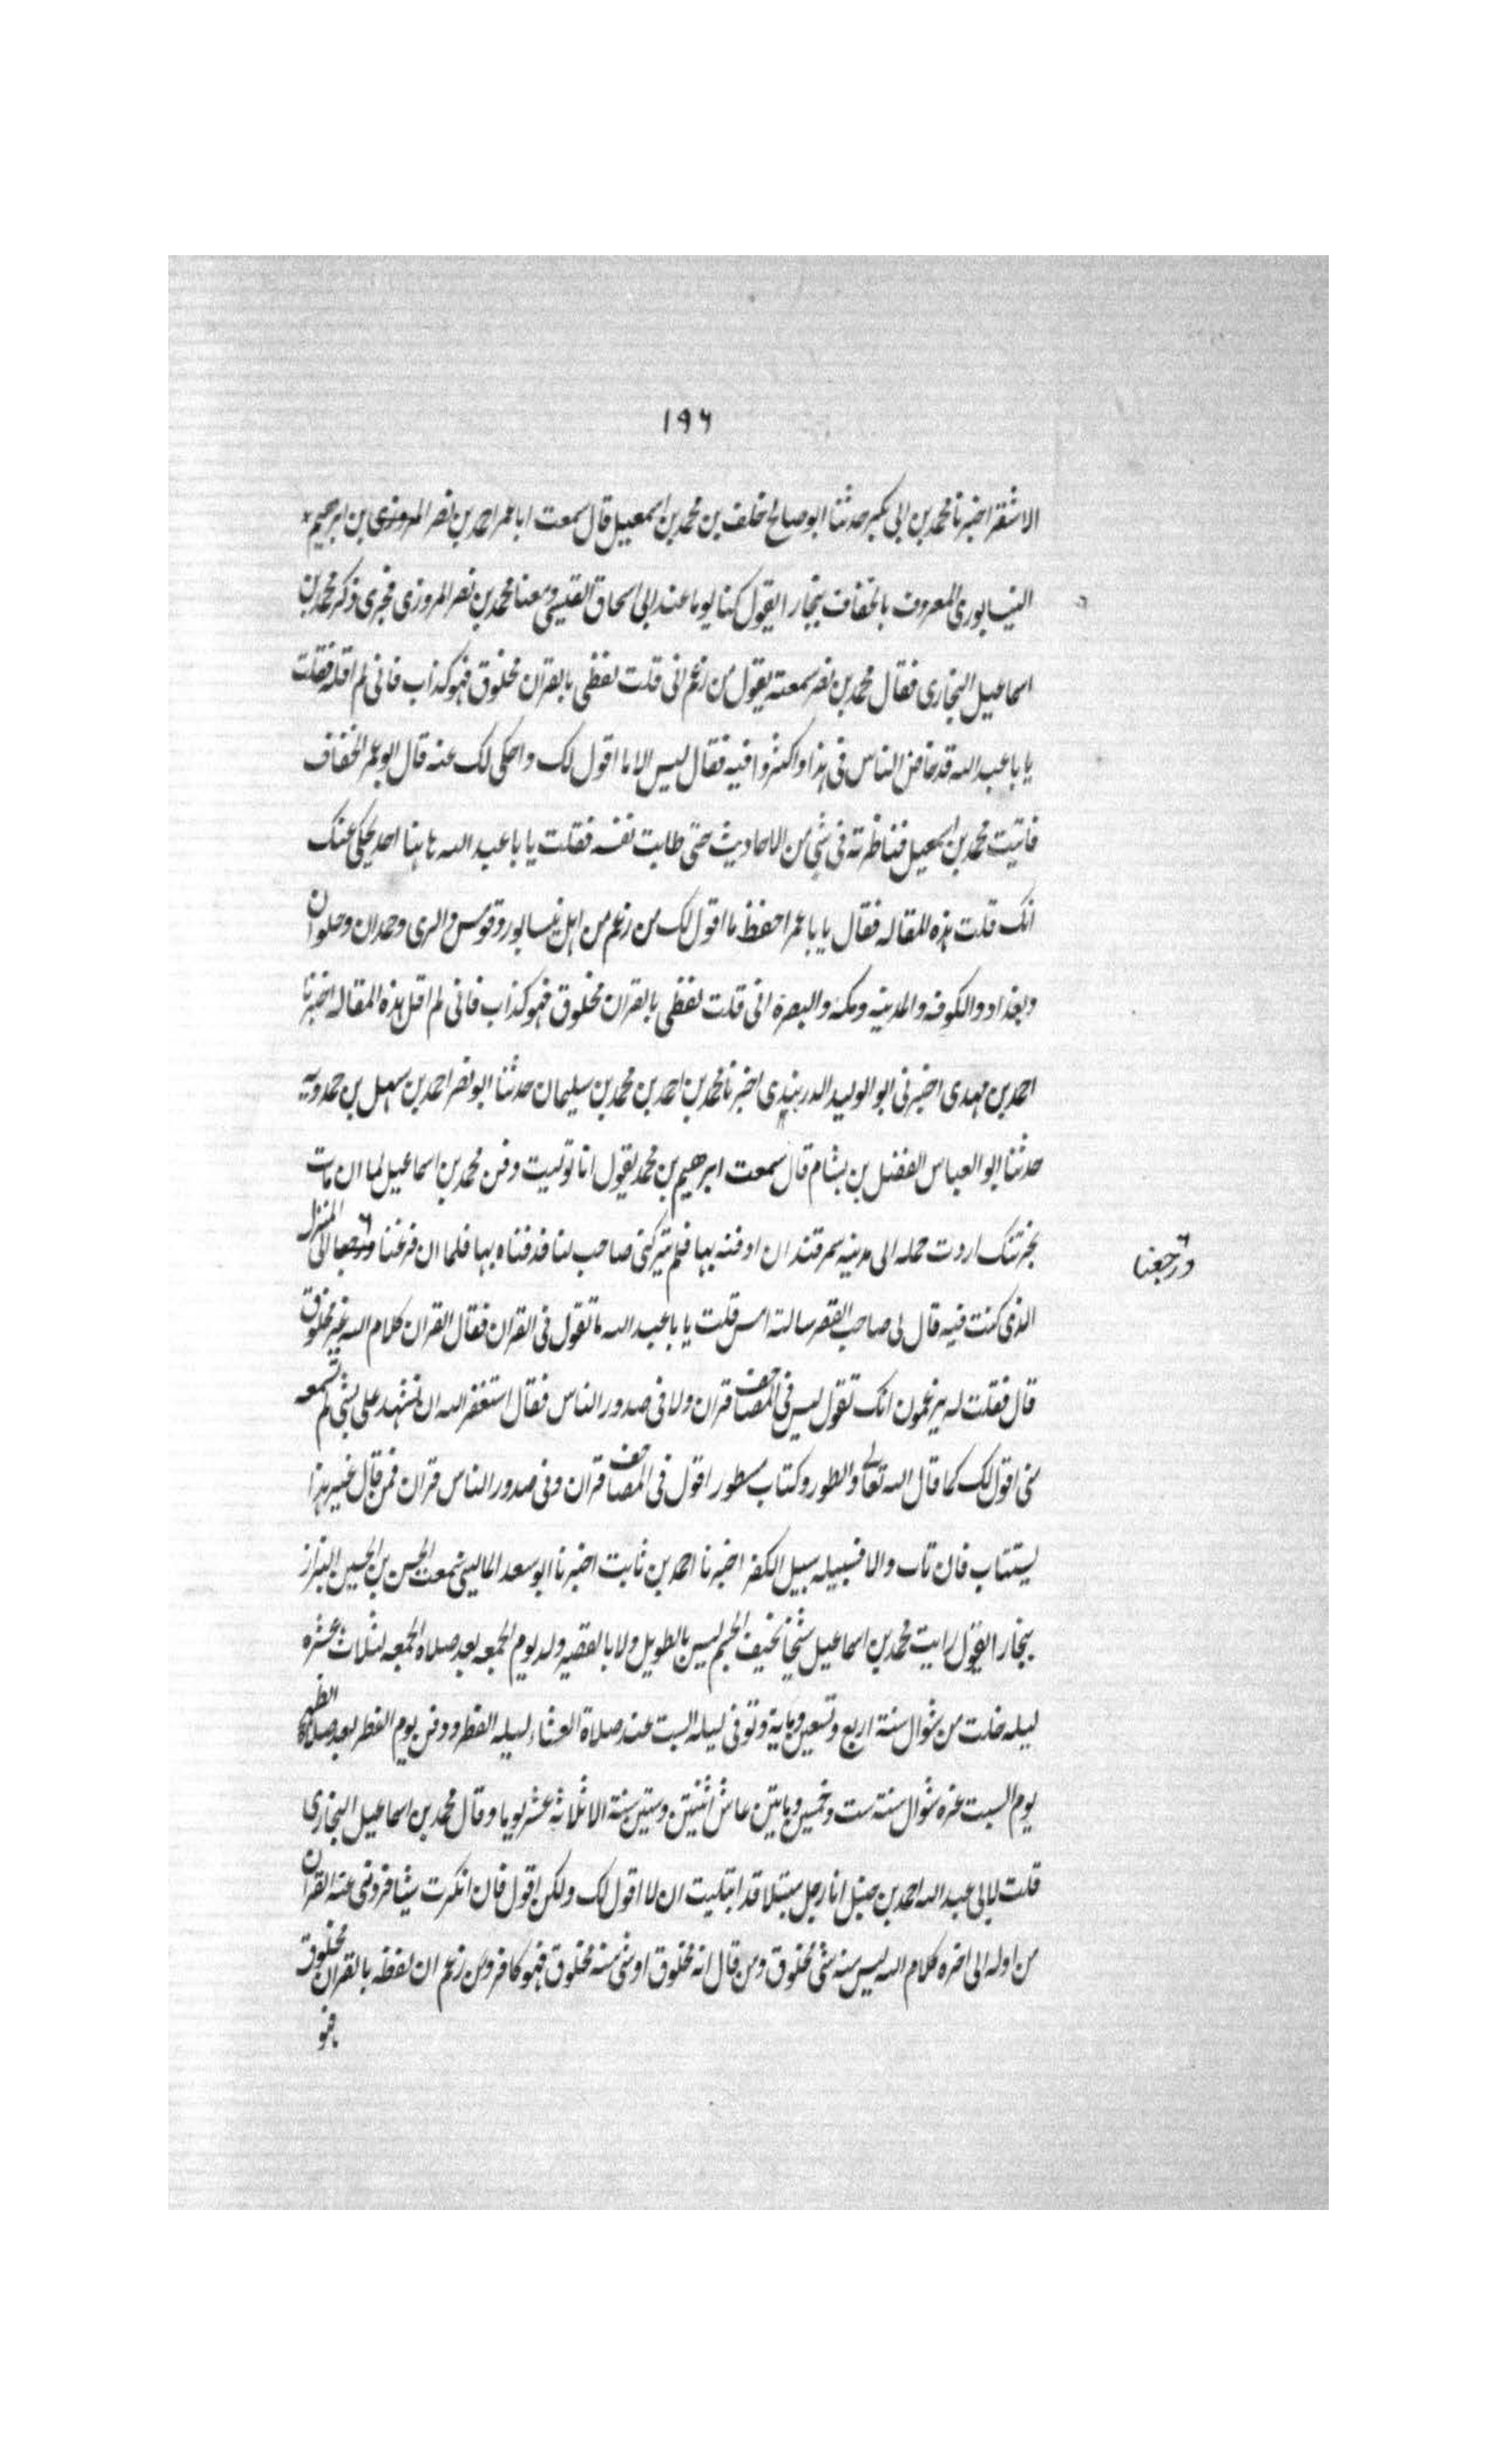 ١٩٦
الاشقر اخبرنا محمد بن ابى بكر حدثنا ابو صالح خلف بن محمد بن اسمعيل قال سمعت ابا عمر احمد بن نصر المروزى بن ابرهيم
النيسابورى المعروف بالخفاف ببخارا يقول كنا يوما عند ابى اسحاق القيسى ومعنا محمد بن نصر المروزى فجرى ذكر محمد بن
اسماعيل البخارى فقال محمد بن نصر سمعته يقول من زعم انى قلت لفظى بالقران مخلوق فهو كذاب فانى لم اقله فقلت
يا با عبد الله قد خاض الناس فى هذا واكثروا فيه فقال ليس الا ما اقول لك واحكى لك عنه قال ابو عمر الخفاف
فاتيت محمد بن اسمعيل فناظرته فى شى من الاحاديث حتى طابت نفسه فقلت يا با عبد الله هاهنا احد يحكى عنك
انك قلت هذه المقاله فقال يا با عمر احفظ ما اقول لك من زعم من اهل نيسابور وقومس والرى وهمدان وحلوان
وبغداد والكوفه والمدينه ومكه والبصرة انى قلت لفظى بالقران مخلوق فهو كذاب فانى لم اقل هذه المقاله اخبرنا
احمد بن مهدى اخبرنى ابو الوليد الدربندى اخبرنا محمد بن احمد بن محمد بن سليمان حدثنا ابو نصر احمد بن سهل بن حمدويه
حدثنا ابو العباس الفضل بن بشام قال سمعت ابرهيم بن محمد يقول انا توليت دفن محمد بن اسماعيل لما ان مات
بخرتنك اردت حمله الى مدينه سمرقند ان ادفنه بها فلم يتركنى صاحب لنا فدفناه بها فلما ان فرغنا ورجعا الى المنزل
ورجعنا
الذى كنت فيه قال لى صاحب القصر سالته امس قلت يا با عبد الله ما تقول فى القران فقال القران كلام الله غير مخلوق
قال فقلت له يزعمون انك تقول ليس فى المصاحف قران ولا فى صدور الناس فقال استغفر الله ان تشهد على بشى لم تسمعه
منى اقول لك كما قال الله تعالى والطور وكتاب مسطور اقول فى المصاحف قران وفى صدور الناس قران فمن قال غير هذا
يستتاب فان تاب والا فسبيله سبيل الكفر اخبرنا احمد بن ثابت اخبرنا ابو سعد المالينى سمعت الحسن بن الحسين البزاز
ببخارا يقول رايت محمد بن اسماعيل شيخا نحيف الجسم ليس بالطويل ولا بالقصير ولد يوم الجمعه بعد صلاة الجمعه لثلاث عشره
ليله خلت من شوال سنة اربع وتسعين وماية وتوفى ليله السبت عند صلاة العشاء ليله الفطر ودفن يوم الفطر بعد صلاة الظهر
يوم السبت غره شوال سنة ست وخمسين ومايتين عاش اثنتين وستين سنة الا ثلاثه عشر يوما وقال محمد بن اسماعيل البخارى
قلت لابى عبد الله احمد بن حنبل انا رجل مبتلا قد ابتليت ان لا اقول لك ولكن اقول فان انكرت شيا فردنى عنه القران
من اوله الى اخره كلام الله ليس منه شى مخلوق ومن قال انه مخلوق او شى منه مخلوق فهو كافر ومن زعم ان لفظه بالقران مخلوق
فهو